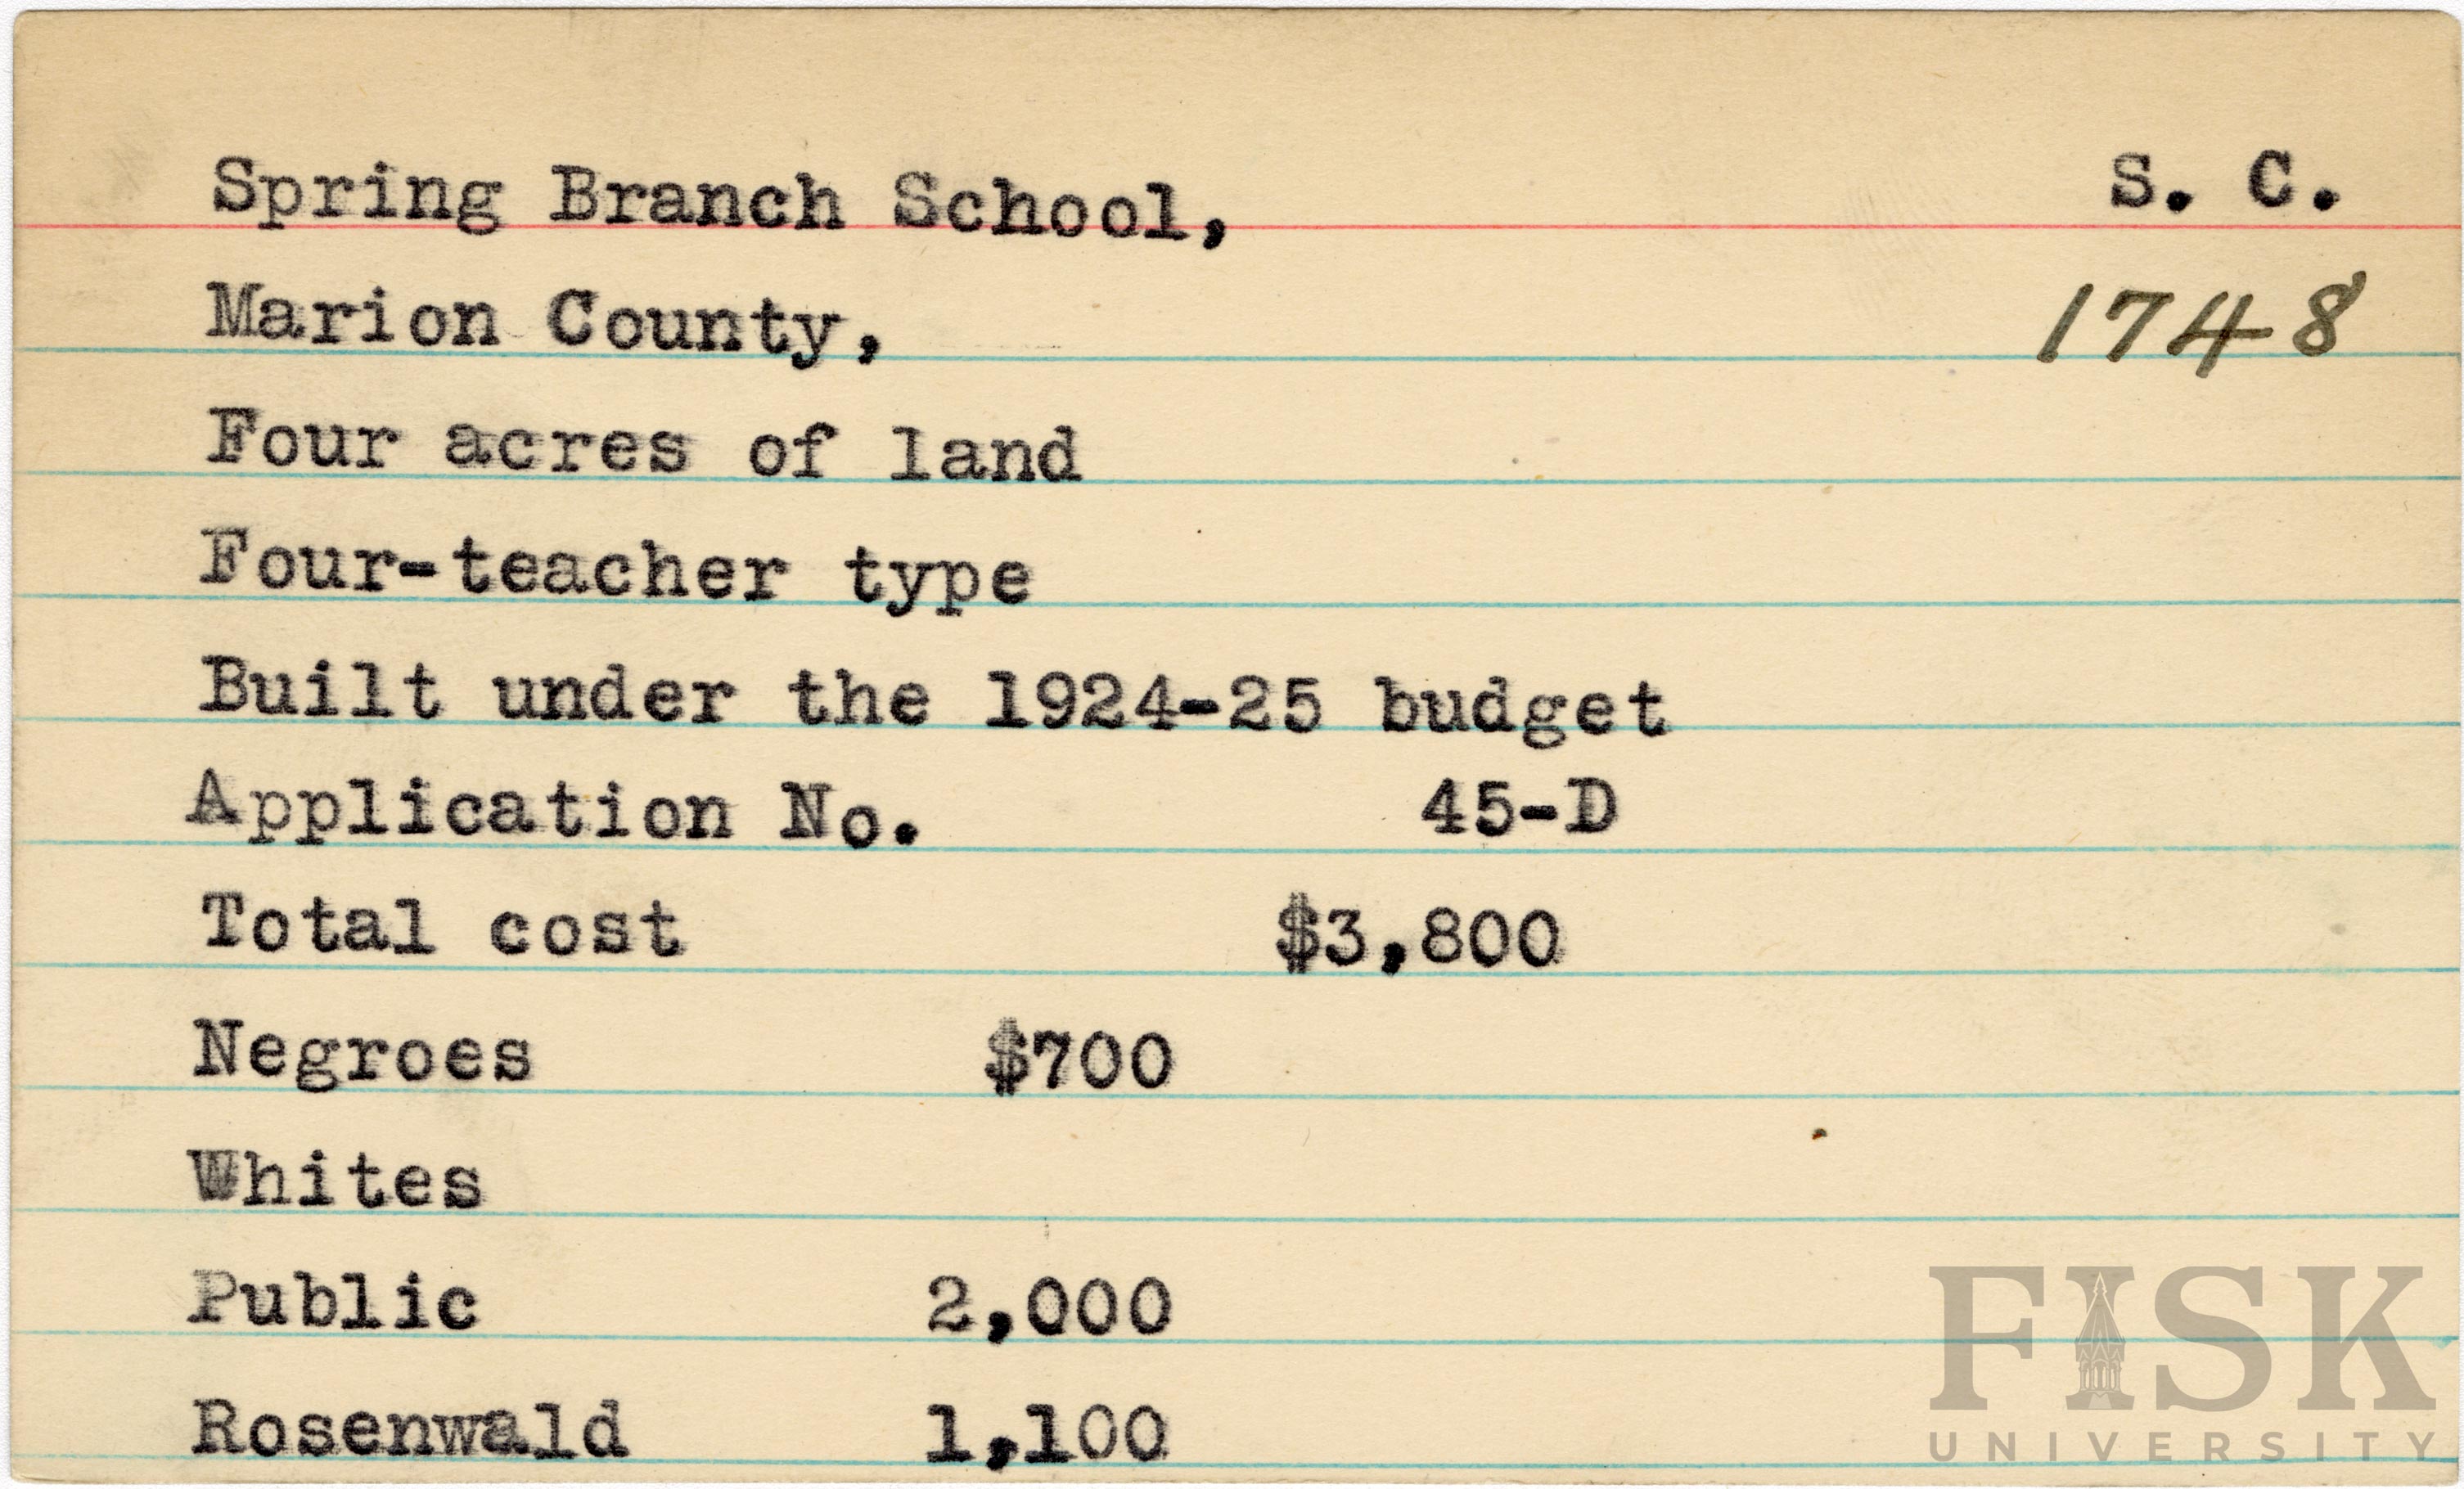 Spring Branch School, S. C.
Marion County, 1748
Four acres of land
Four-teacher type
Built under the 1924-25 budget
Application No. 45-D
Total cost $3,800
Negroes $700
Whites
Public 2,000
Rosenwald 1,100
FISK
UNIVERSITY